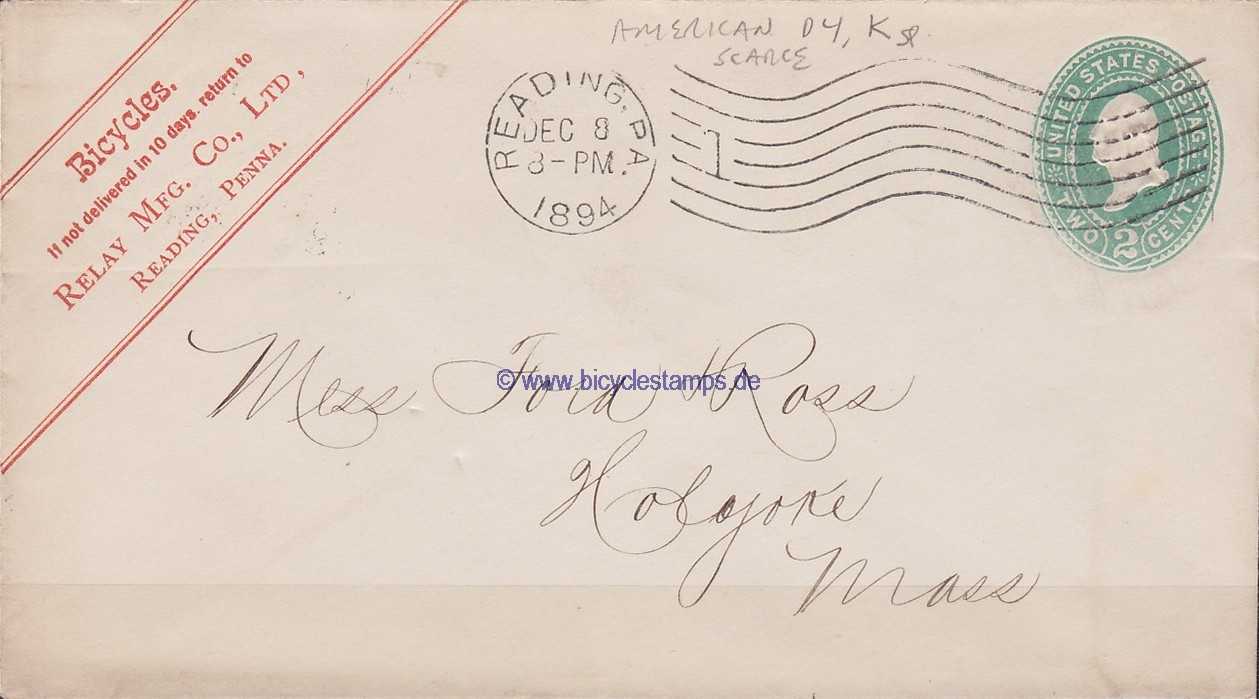 Bicycles.
If not delivered in 10 days. return to
RELAY MFG. CO., LTD,
READING, PENNA.
AMERICAN D4, K
SCARCE
READING, PA
DEC 8
8-PM.
1894
1
UNITED STATES POSTAGE
TWO 2 CENTS
Mess Ford & Ross
Holyoke
Mass
© www.bicyclestamps.de